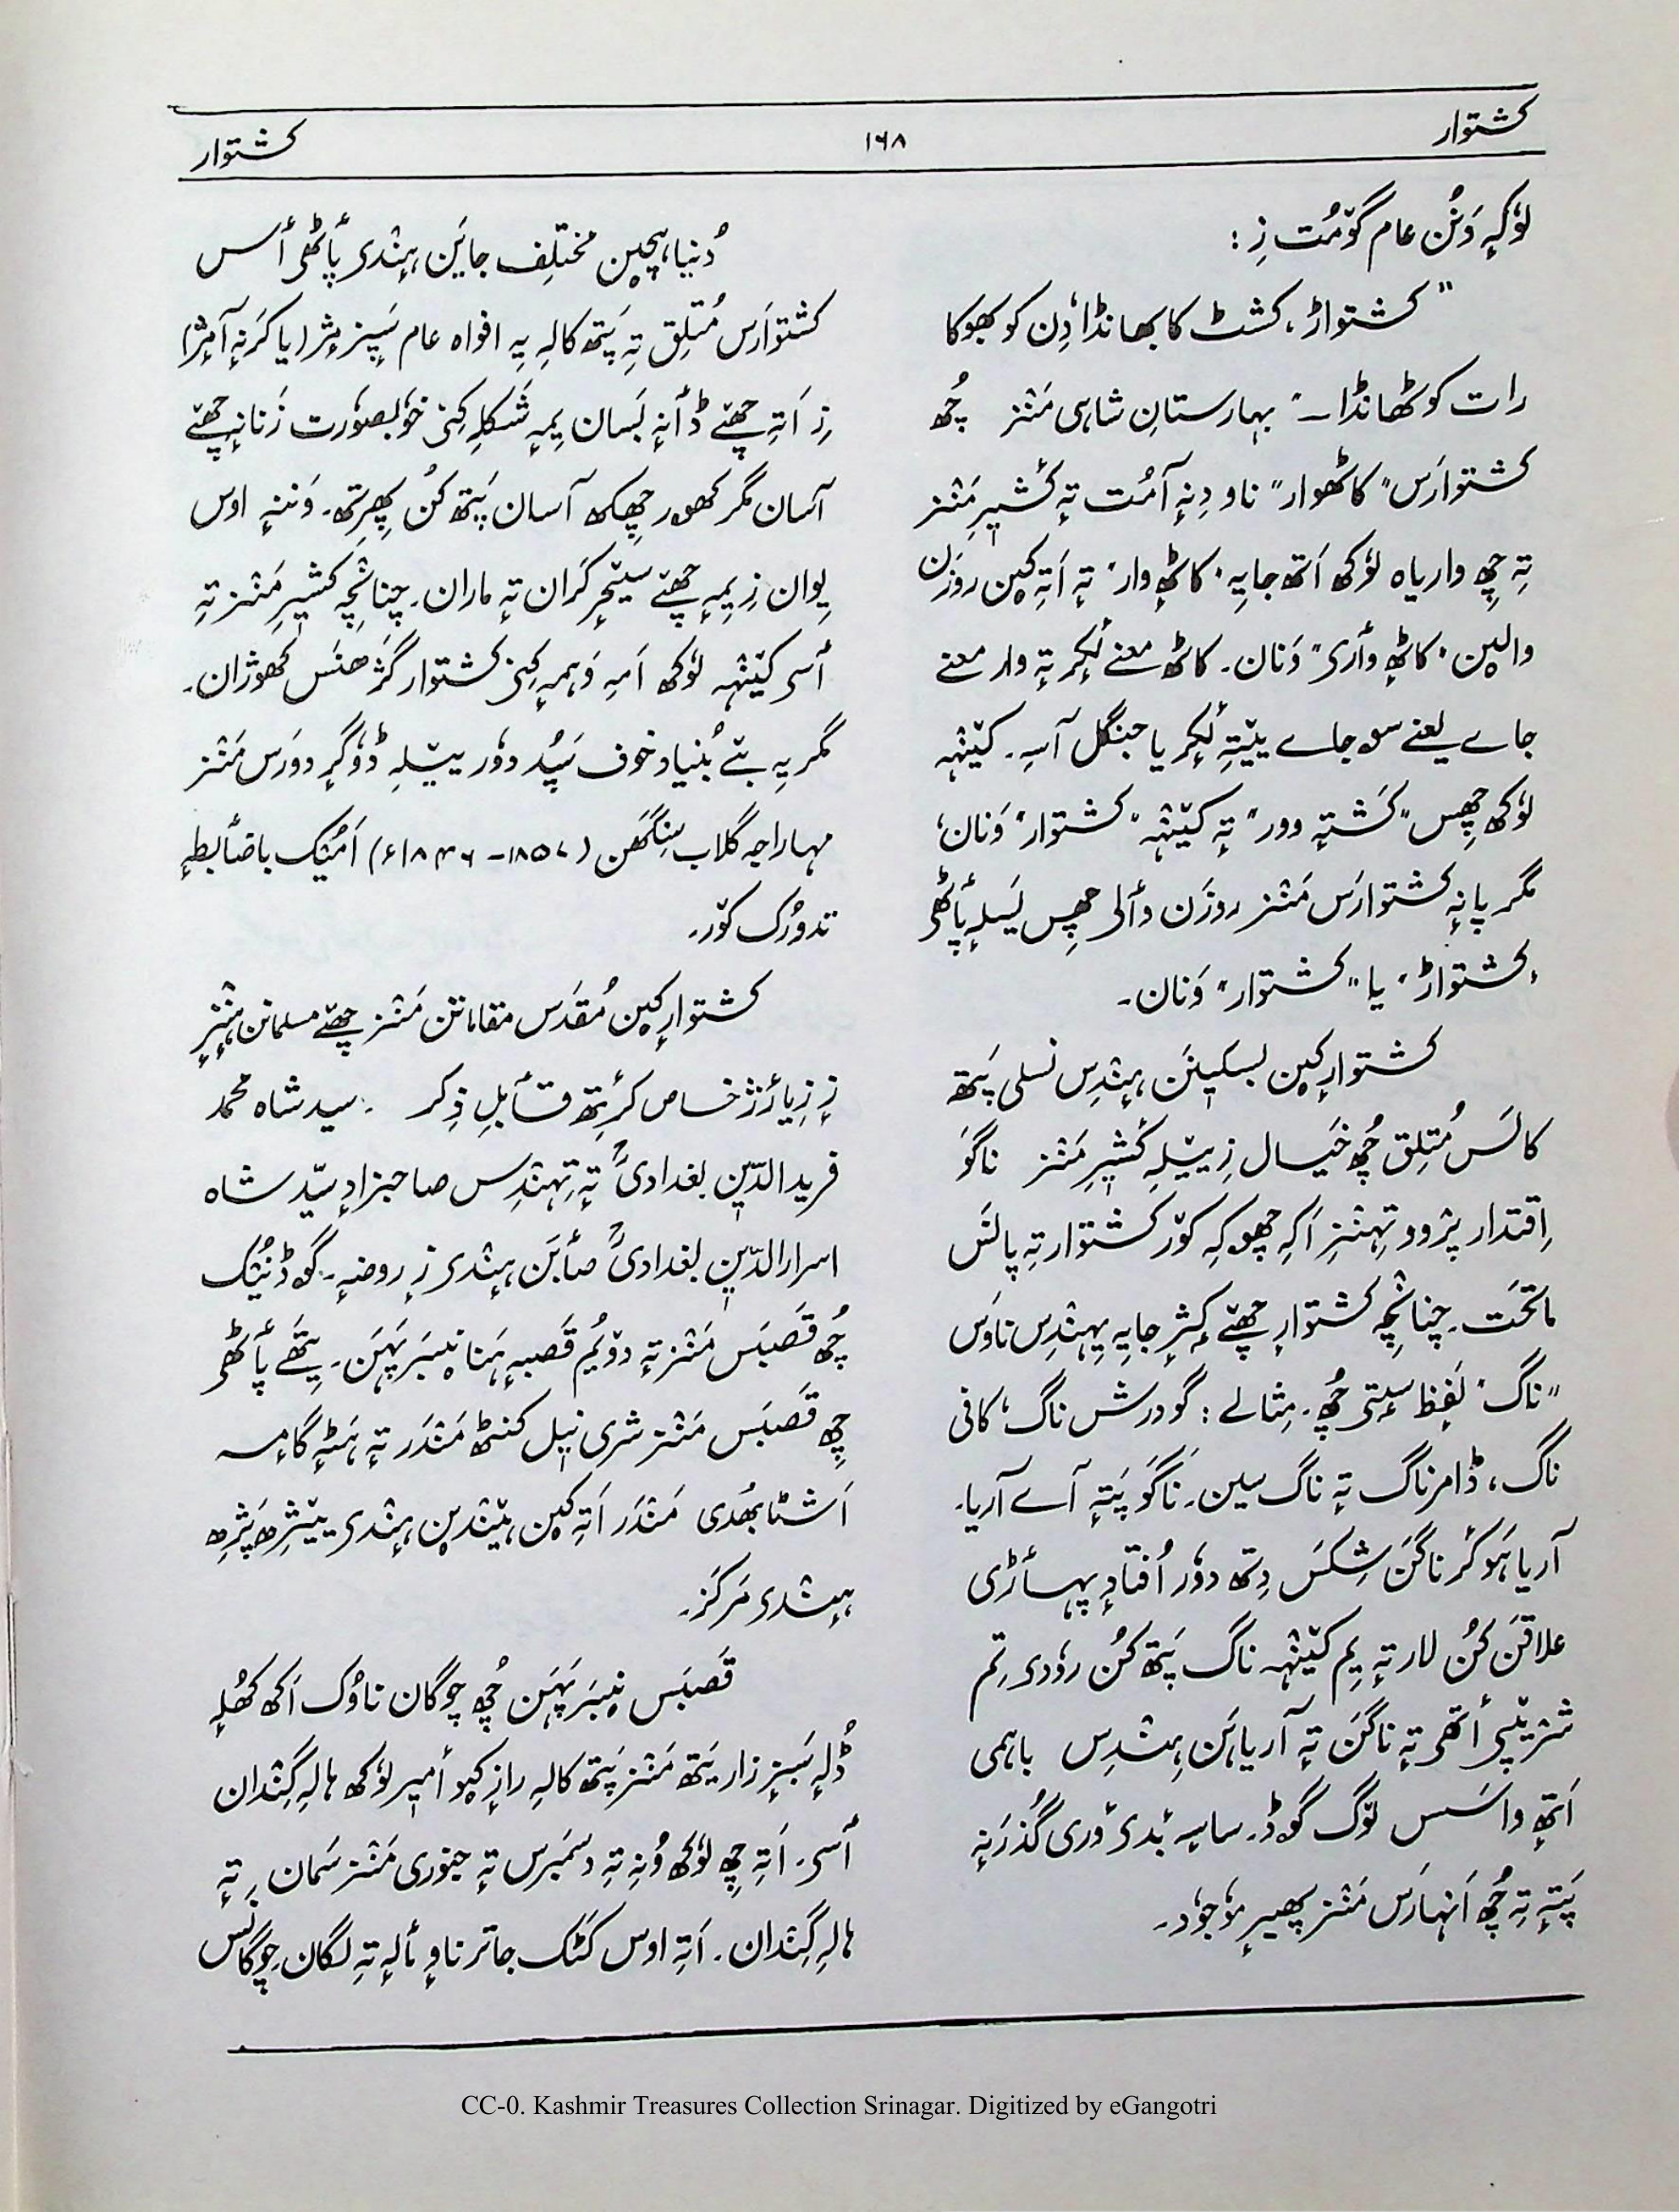 کشتوار
۱۶۸
کشتوار
لوٗکہٕ وَنُن عام گوٚمُت زِ :
"کشتواڑ، کشٹ کا بھانڈا، دِن کو بھوکا
رات کو ٹھانڈا۔" بہارستانِ شاہی مَنٛز چُھ
کشتوارَس "کاٹھوار" ناو دِنہٕ آمُت تہٕ کٔشیٖرِ مَنٛز
تہِ چِھ واریاہ لوٗکھ اَتھ جایہِ "کاٹھٕ وار" تہٕ اَتہِ کین روزن
والیٚن "کاٹھٕ وأری" وَنان۔ کاٹھ معنے لٔکٕر تہٕ وار معنے
جاے یعنے سۄ جاے ییٚتہِ لٔکٕر یا جنگل آسہِ۔ کیٚنٛہہ
لوٗکھ چِھس "کَشتہٕ وور" تہٕ کیٚنٛہہ "کشتوار" وَنان،
مگر پانہٕ کشتوارَس مَنٛز روزَن وألی چِھس یَسلہٕ پأٹھی
"کشتواڑ" یا "کشتوار" وَنان۔
کشتوارٕکین بسکیٖنَن ہِنٛدِس نسلی پَتھ
کالَس مُتلِق چُھ خیال زِ ییٚلہِ کٔشیٖرِ مَنٛز ناگَو
اِقتدار پرٛوو تہِنٛزِ اَکہِ چھوکہِ کوٚر کشتوار تہِ پانَس
ماتحَت۔ چنانٛچہ کشتوارٕ چھےٚ کٔژ جایہِ یِہِنٛدِس ناوَس
"ناگ" لَفٕظ سٟتی چُھ۔ مِثالے : گودرش ناگ، کافی
ناگ، ڈامرناگ تہٕ ناگ سین۔ ناگَو پَتہٕ آے آریا۔
آریاہَو کٔر ناگَن شِکَس دِتھ دوٗر اُفتادٕ پہأڑی
علاقن کُن لار تہٕ یِم کیٚنٛہہ ناگ پَتھ کُن روٗدی تِم
شرٛیپی أتھی تہٕ ناگَن تہٕ آریاہَن ہِنٛدِس باہمی
اَتھٕ واسَس لوٚگ گوڈ۔ ساسہٕ بٔدی ؤری گُذرَنہٕ
پَتہٕ تہِ چُھ اَنہارَس مَنٛز پھیر موٗجوٗد۔
دُنیاہچین مختلِف جاین ہِنٛدی پأٹھی أس
کشتوارَس مُتلِق تہِ پَتھ کالہِ یہِ افواہ عام سَپٕز مٕژ (یا کَرنہٕ آمٕژ)
زِ اَتہِ چھےٚ ڈأنہٕ بَسان یِمہٕ شَکلہِ کِنی خوٗبصوٗرت زَنانہٕ چھےٚ
آسان مگر کھور چِھکھ آسان پَتھ کُن پھِرِتھ۔ وَننہٕ اوس
یِوان زِ یِمہٕ چھےٚ سیٚحٕر کَران تہٕ ماران۔ چنانٛچہ کٔشیٖرِ مَنٛز تہِ
أسی کیٚنٛہہ لوٗکھ اَمہِ وَہمہٕ کِنی کشتوار گژھنَس کھوژان۔
مگر یہِ بےٚ بُنیاد خوف سَپُد دوٗر ییٚلہِ ڈوٗگرٕ دورَس مَنٛز
مہاراجہ گلاب سِنگھَن (۱۸۵۷ - ۱۸۴۶ء) اَمُک باضأبطہٕ
تدورُک کوٚر۔
کشتوارٕکین مُقدَس مقاماتَن مَنٛز چھےٚ مسلمانَن ہِنٛزٕ
زٕ زِیارٔژ خاص کٔرِتھ قأبلِ ذِکر۔ سید شاہ محمد
فریدالدّین بغدادیؒ تہٕ تِہِنٛدِس صاحبزادٕ سیّد شاہ
اسرارالدّین بغدادیؒ صأبَن ہِنٛدی زٕ روضہٕ۔ گوڈنیُک
چُھ قَصبَس مَنٛز تہٕ دوٚیُم قَصبہٕ ہَنا نیبرَ پَہَن۔ یِتھَے پأٹھی
چِھ قَصبَس مَنٛز شری نیل کنٹھ مَنٛدَر تہٕ ہَٹہٕ گامہ
اَشٹا بھُدی مَنٛدَر اَتہِ کین ہیٚنٛدین ہِنٛدی
ہِنٛدی مَرکَز۔
قَصبَس نیبرَ پَہَن چُھ چوگان ناوُک اَکھ کھُلہٕ
ڈُلہٕ سَبزٕ زار یَتھ مَنٛز پَتھ کالہِ رازٕ کیو أمیر لوٗکھ ہالہِ گِنٛدان
أسی۔ اَتہِ چِھ لوٗکھ وُنہِ تہِ دسمبرس تہٕ جنوری مَنٛز سَمان تہٕ
ہالہِ گِنٛدان۔ اَتہِ اوس کَٹک جاتر ناوٕ مألہٕ تہِ لگان۔ چوگانَس
CC-0. Kashmir Treasures Collection Srinagar. Digitized by eGangotri